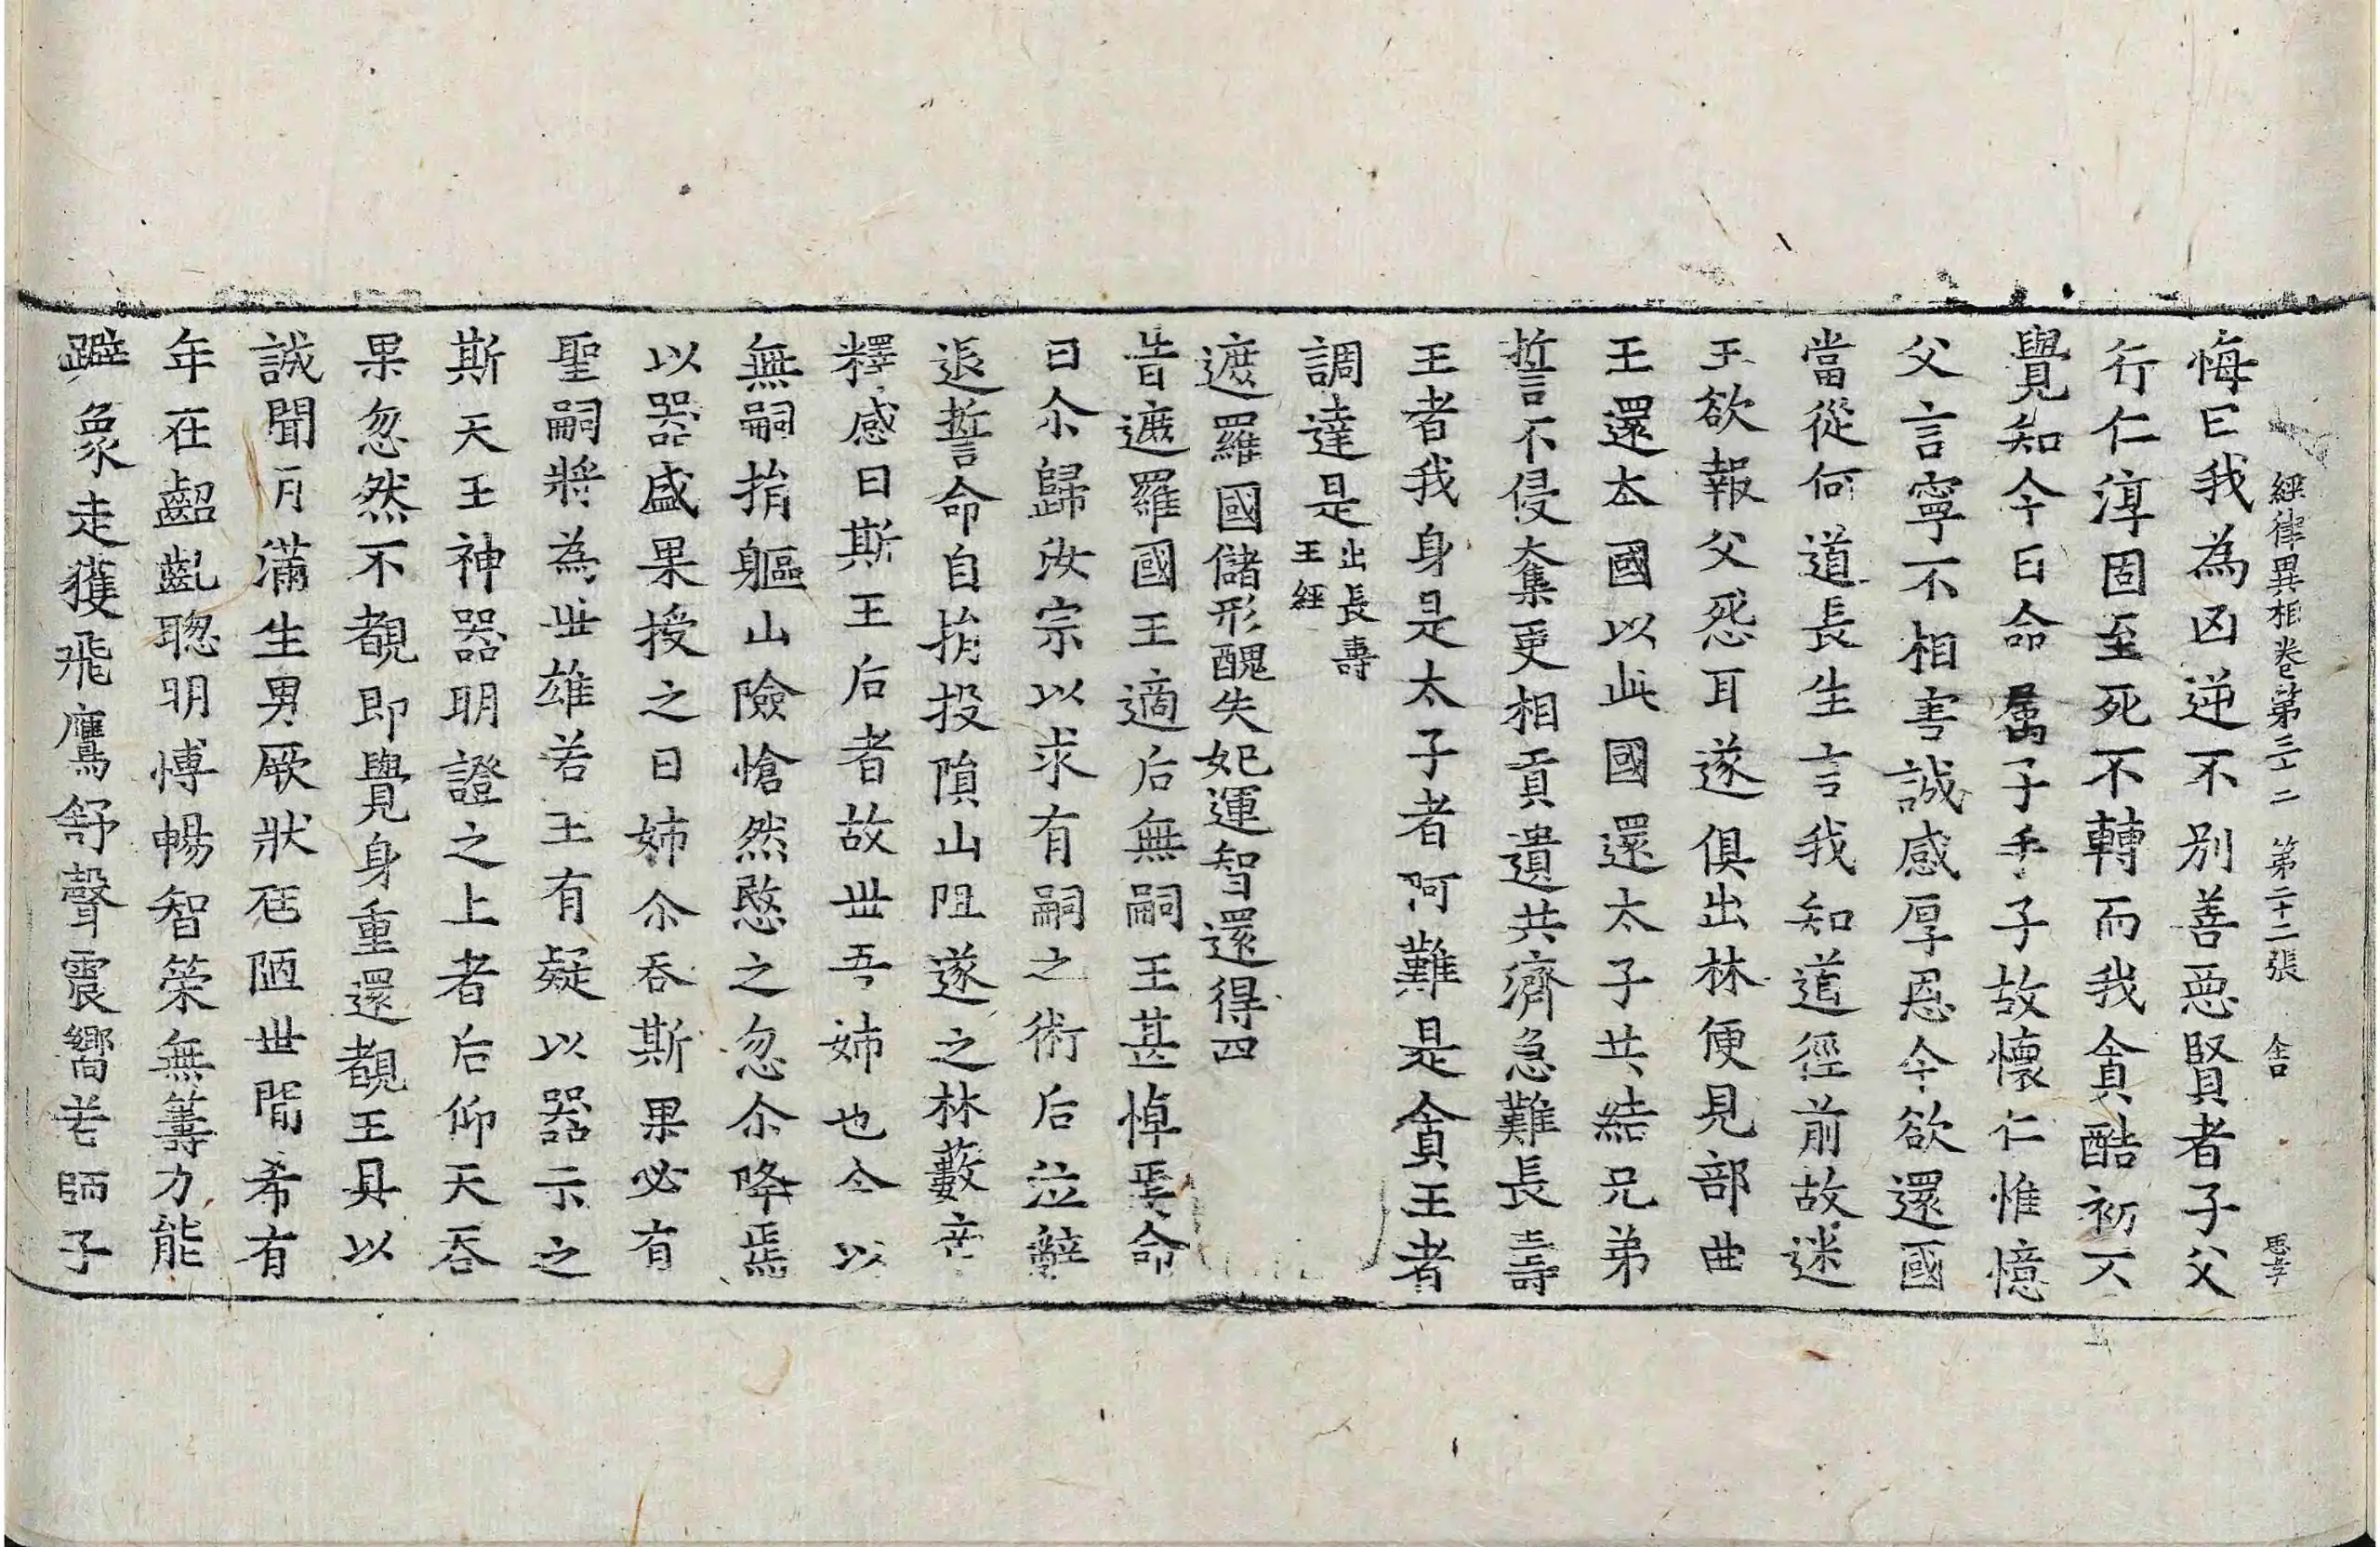 經律異相卷第三十二 第二十二張 合 思孝
悔曰我為凶逆不別善惡賢者子父
行仁淳固至死不轉而我貪酷初不
覺知今日命属子手子故懷仁惟憶
父言寧不相害誠感厚恩今欲還國
當從何道長生言我知道徑前故迷
王欲報父怨耳遂俱出林便見部曲
王還本國以此國還太子共結兄弟
誓不侵奪更相貢遺共濟急難長壽
王者我身是太子者阿難是貪王者
調達是出長壽王經
遮羅國儲形醜失妃運智還得四
昔遮羅國王適后無嗣王甚悼焉命
曰尒歸汝宗以求有嗣之術后泣辭
退誓命自捐投隕山阻遂之林藪帝
釋感曰斯王后者故丗吾姉也今以
無嗣捐軀山險愴然愍之忽尒降焉
以器盛果授之曰姉尒吞斯果必有
聖嗣將為丗雄若王有疑以器示之
斯天王神器明證之上者后仰天吞
果忽然不覩即覺身重還覩王具以
誠聞月滿生男厥狀尫陋丗間希有
年在齠齔聦明博暢智策無籌力能
躃象走獲飛鷹舒聲震響若師子